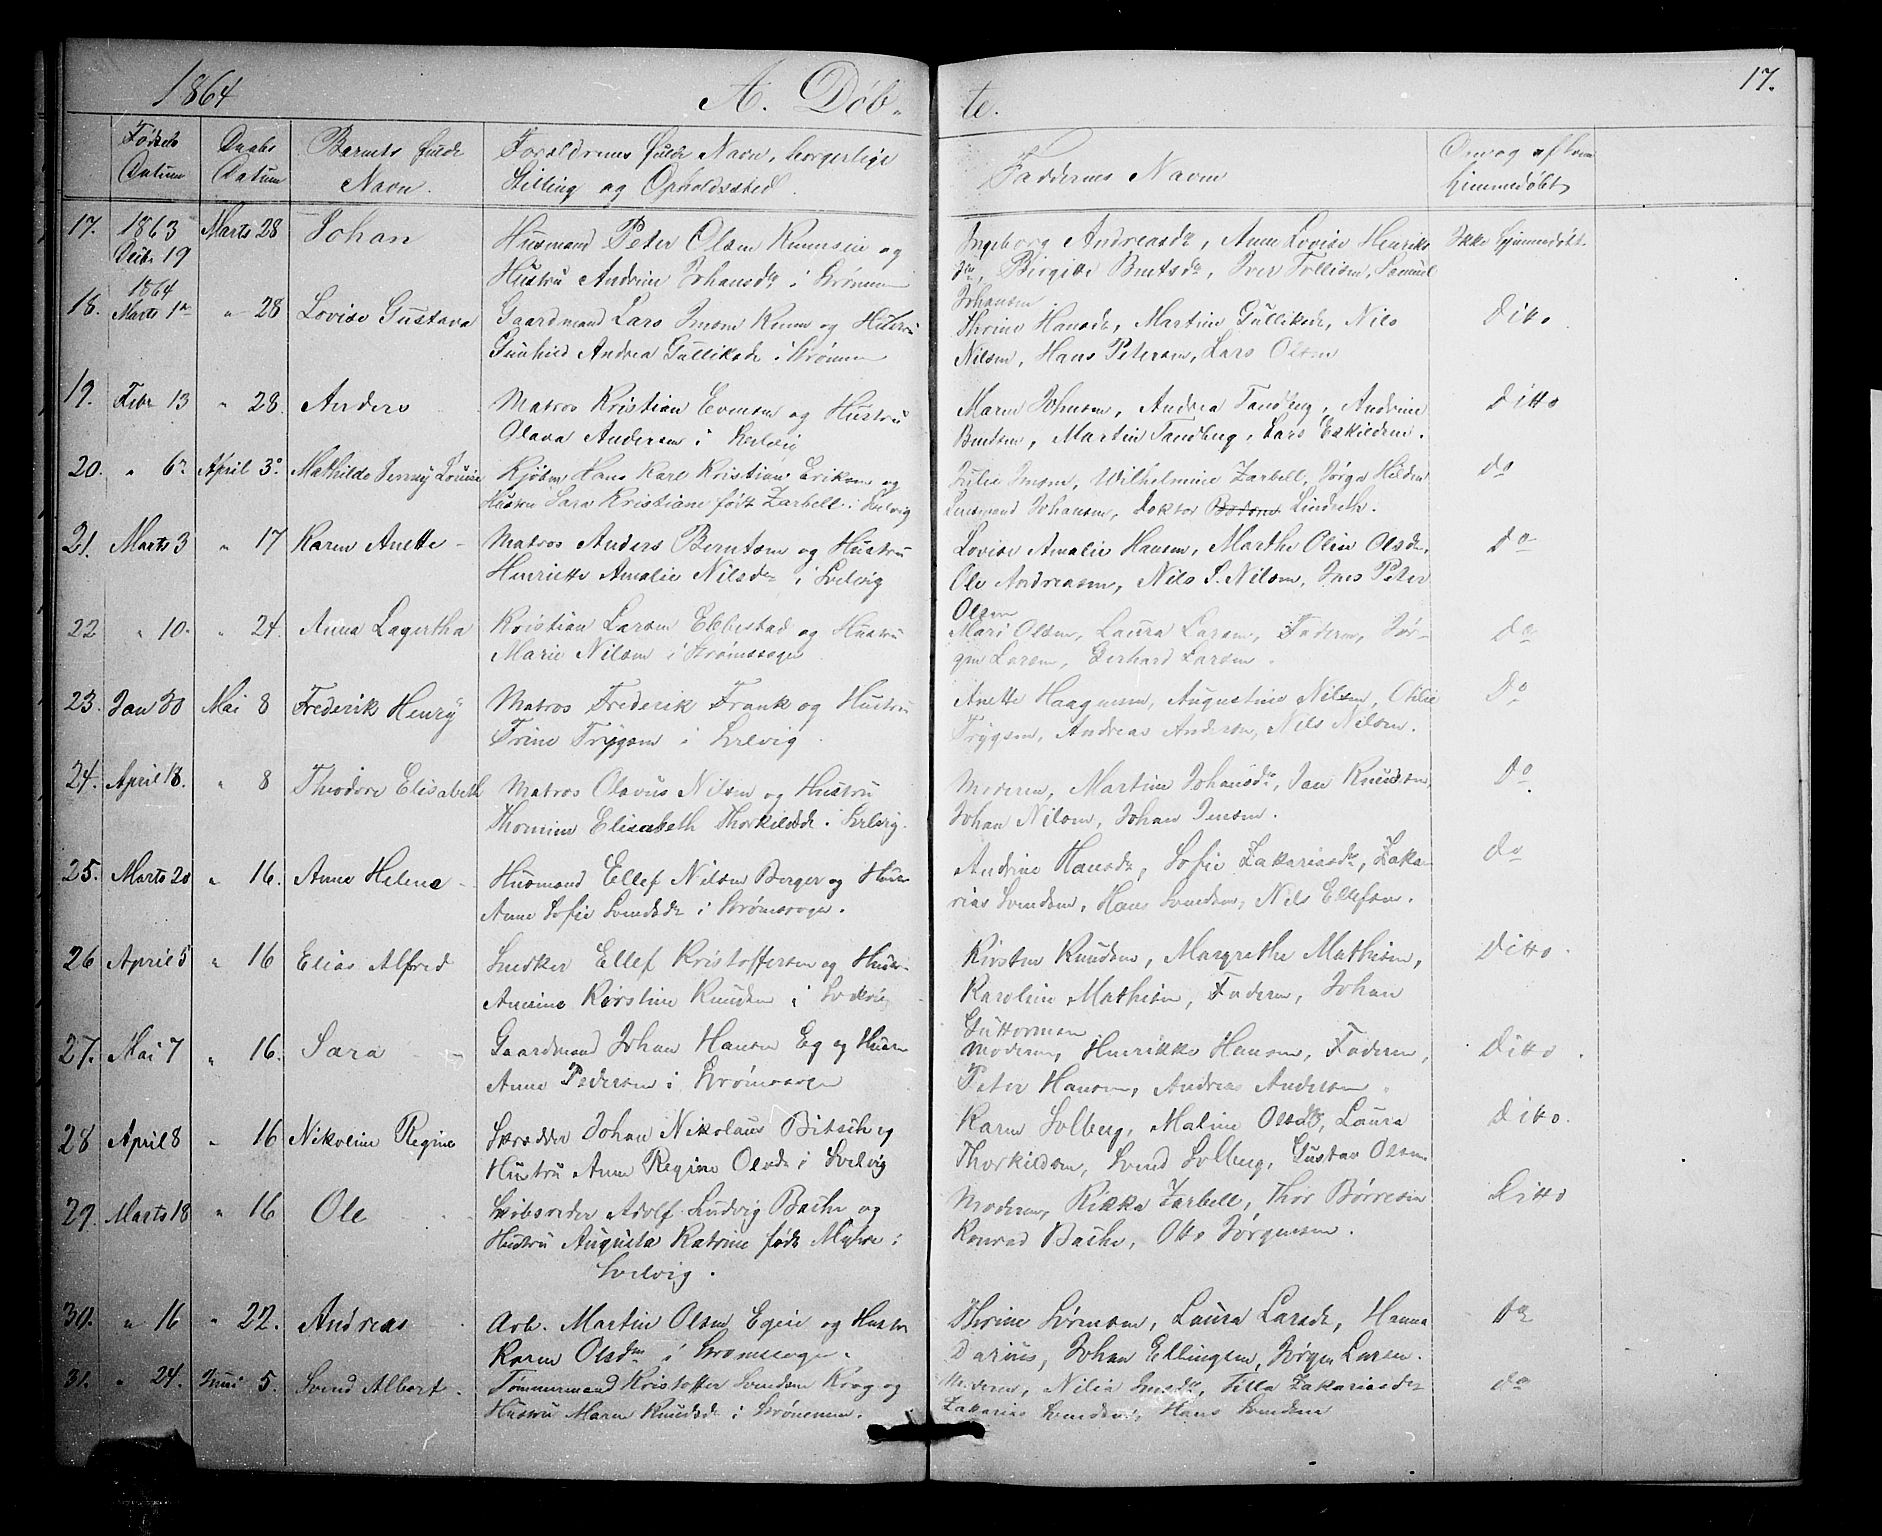 1864 A. Døb- te. 17.
Fødsels Datum Daabs Datum Barnets fulde Navn. Forældrenes fulde Navn, borgerlige Stilling og Opholdssted. Faddernes Navne Om og af hvem hjemmedøbt
17. 1863 Marts 28 Johan Husmand Peter Olsen og Ingeborg Andreasdr, Anne Lovise Henriks
Decbr 19 Hustru Andrine Johansdr i Strømmen dr, Birgitte Berntsdr, Iver Tollefsen, Samuel Ikke hjemmedøbt.
1864 Johansen
18. Marts 1ste " 28 Lovise Gustava Gaardmand Lars Jensen og Hustru Thrine Hansdr, Martine Gulliksdr, Nils Ditto
Gunhild Andrea Gulliksdr i Strømmen Nilsen, Hans Petersen, Lars Olsen
19. Febr 13 " 28. Anders Matros Kristian Evensen og Hustru Maren Johnsen, Andrea Tandberg, Andrine Ditto
Olava Andersen i Svelvig Berntsen, Martin Tandberg, Lars Eskildsen.
20. " 6te April 3. Mathilde Jenny Louise Kjøbm Hans Karl Kristian Eriksen og Julie Jensen, Wilhelmine Zarbell, Jørgen Hilden do
Hustru Sara Kristiane født Zarbell i Svelvig Lensmand Johansen, Doktor Lindseth.
21. Marts 3 " 17 Karen Anette - Matros Anders Berntsen og Hustru Lovise Amalie Hansen, Marthe Oline Olsdr, Do
Henriette Amalie Nilsdr i Svelvig Ole Andreasen, Nils S. Nilsen, Jens Peter
Olsen
22 " 10. " 24. Anna Lagertha Kristian Larsen Ebbestad og Hustru Mari Olsen, Laura Larsen, Faderen, Jør- Do
Marie Nilsen i Strømssogn gen Larsen, Gerhard Larsen.
23. Jan 30 Mai 8 Frederik Henry Matros Frederik Frank og Hustru Anette Haagensen, Augustine Nilsen, Otilie Do
Trine Trygsen i Svelvig Trygsen, Andreas Andersen, Nils Nilsen.
24. April 18. " 8 Theodore Elisabeth Matros Olavus Nilsen og Hustru Moderen, Martine Johansdr, Jan Knudsen, Do
Thomine Elisabeth Thorkildsdr i Svelvig. Johan Nilsen, Johan Jensen.
25. Marts 20 " 16. Anne Helene - Husmand Ellef Nilsen Berger og Hustru Andrine Hansdr, Sofie Zakariasdr, Zaka- do
Anne Sofie Svendsdr i Strømssogn. rias Svendsen, Hans Svendsen, Nils Ellefsen.
26 April 5 " 16 Elias Alfred Snedker Ellef Kristoffersen og Hustru Kirsten Knudsen, Margrethe Mathisen, Ditto.
Amrine Kirstine Knudsen i Svelvig Karoline Mathisen, Faderen, Johan
Guttormsen
27. Mai 7 " 16. Sara - Gaardmand Johan Hansen Eg og Hustru Moderen, Henrikke Hansen, Faderen, Ditto.
Anne Pedersen i Strømssogn Peter Hansen, Andreas Andersen.
28 April 8 " 16 Nikoline Regine Skrædder Johan Nikolaus Bitsch og Karen Solberg, Maline Olsdr, Laura Ditto.
Hustru Anne Regine Olsdr i Svelvig Thorkildsen, Svend Solberg, Gustav Olsen
29. Marts 18 " 16 Ole Skibsreder Adolf Ludvig Bache og Moderen, Rikka Zarbell, Thor Børresen Ditto
Hustru Augusta Katrine født Myhre i Konrad Bache, Otto Jørgensen.
Svelvig.
30. " 16 " 22. Andreas Arb. Martin Olsen og Hustru Thrine Sørensen, Laura Larsdr, Hanna do
Karen Olsdtr i Strømssogn. Darius, Johan Ellingsen, Jørgen Larsen.
31. " 24. Juni 5. Svend Albert. Tømmermand Kristoffer Svendsen Krog og Moderen, Nilia Jensdr, Tilla Zakariasdr do
Hustru Maren Knudsdr i Strømmen. Zakarias Svendsen, Hans Svendsen